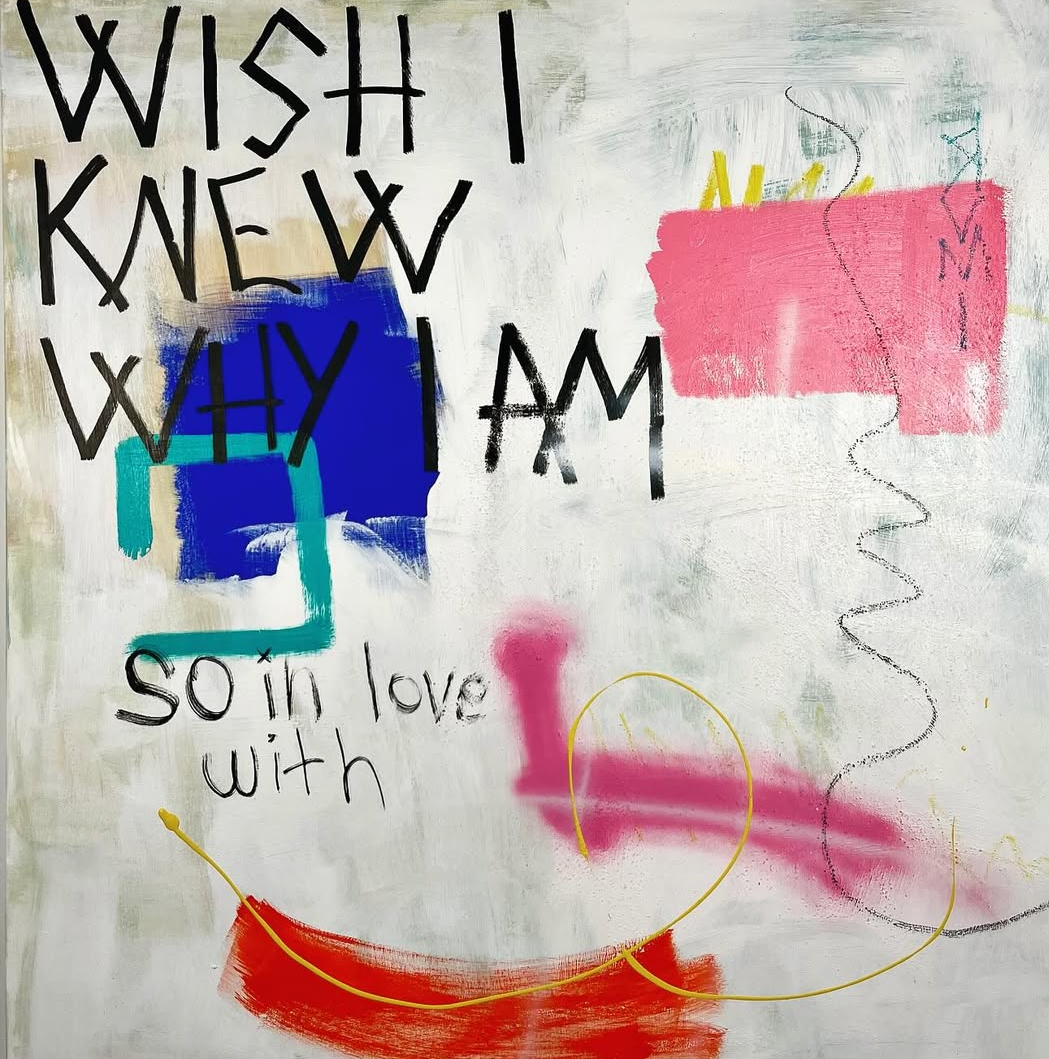 WISH I
KNEW
WHY I AM
so in love
with